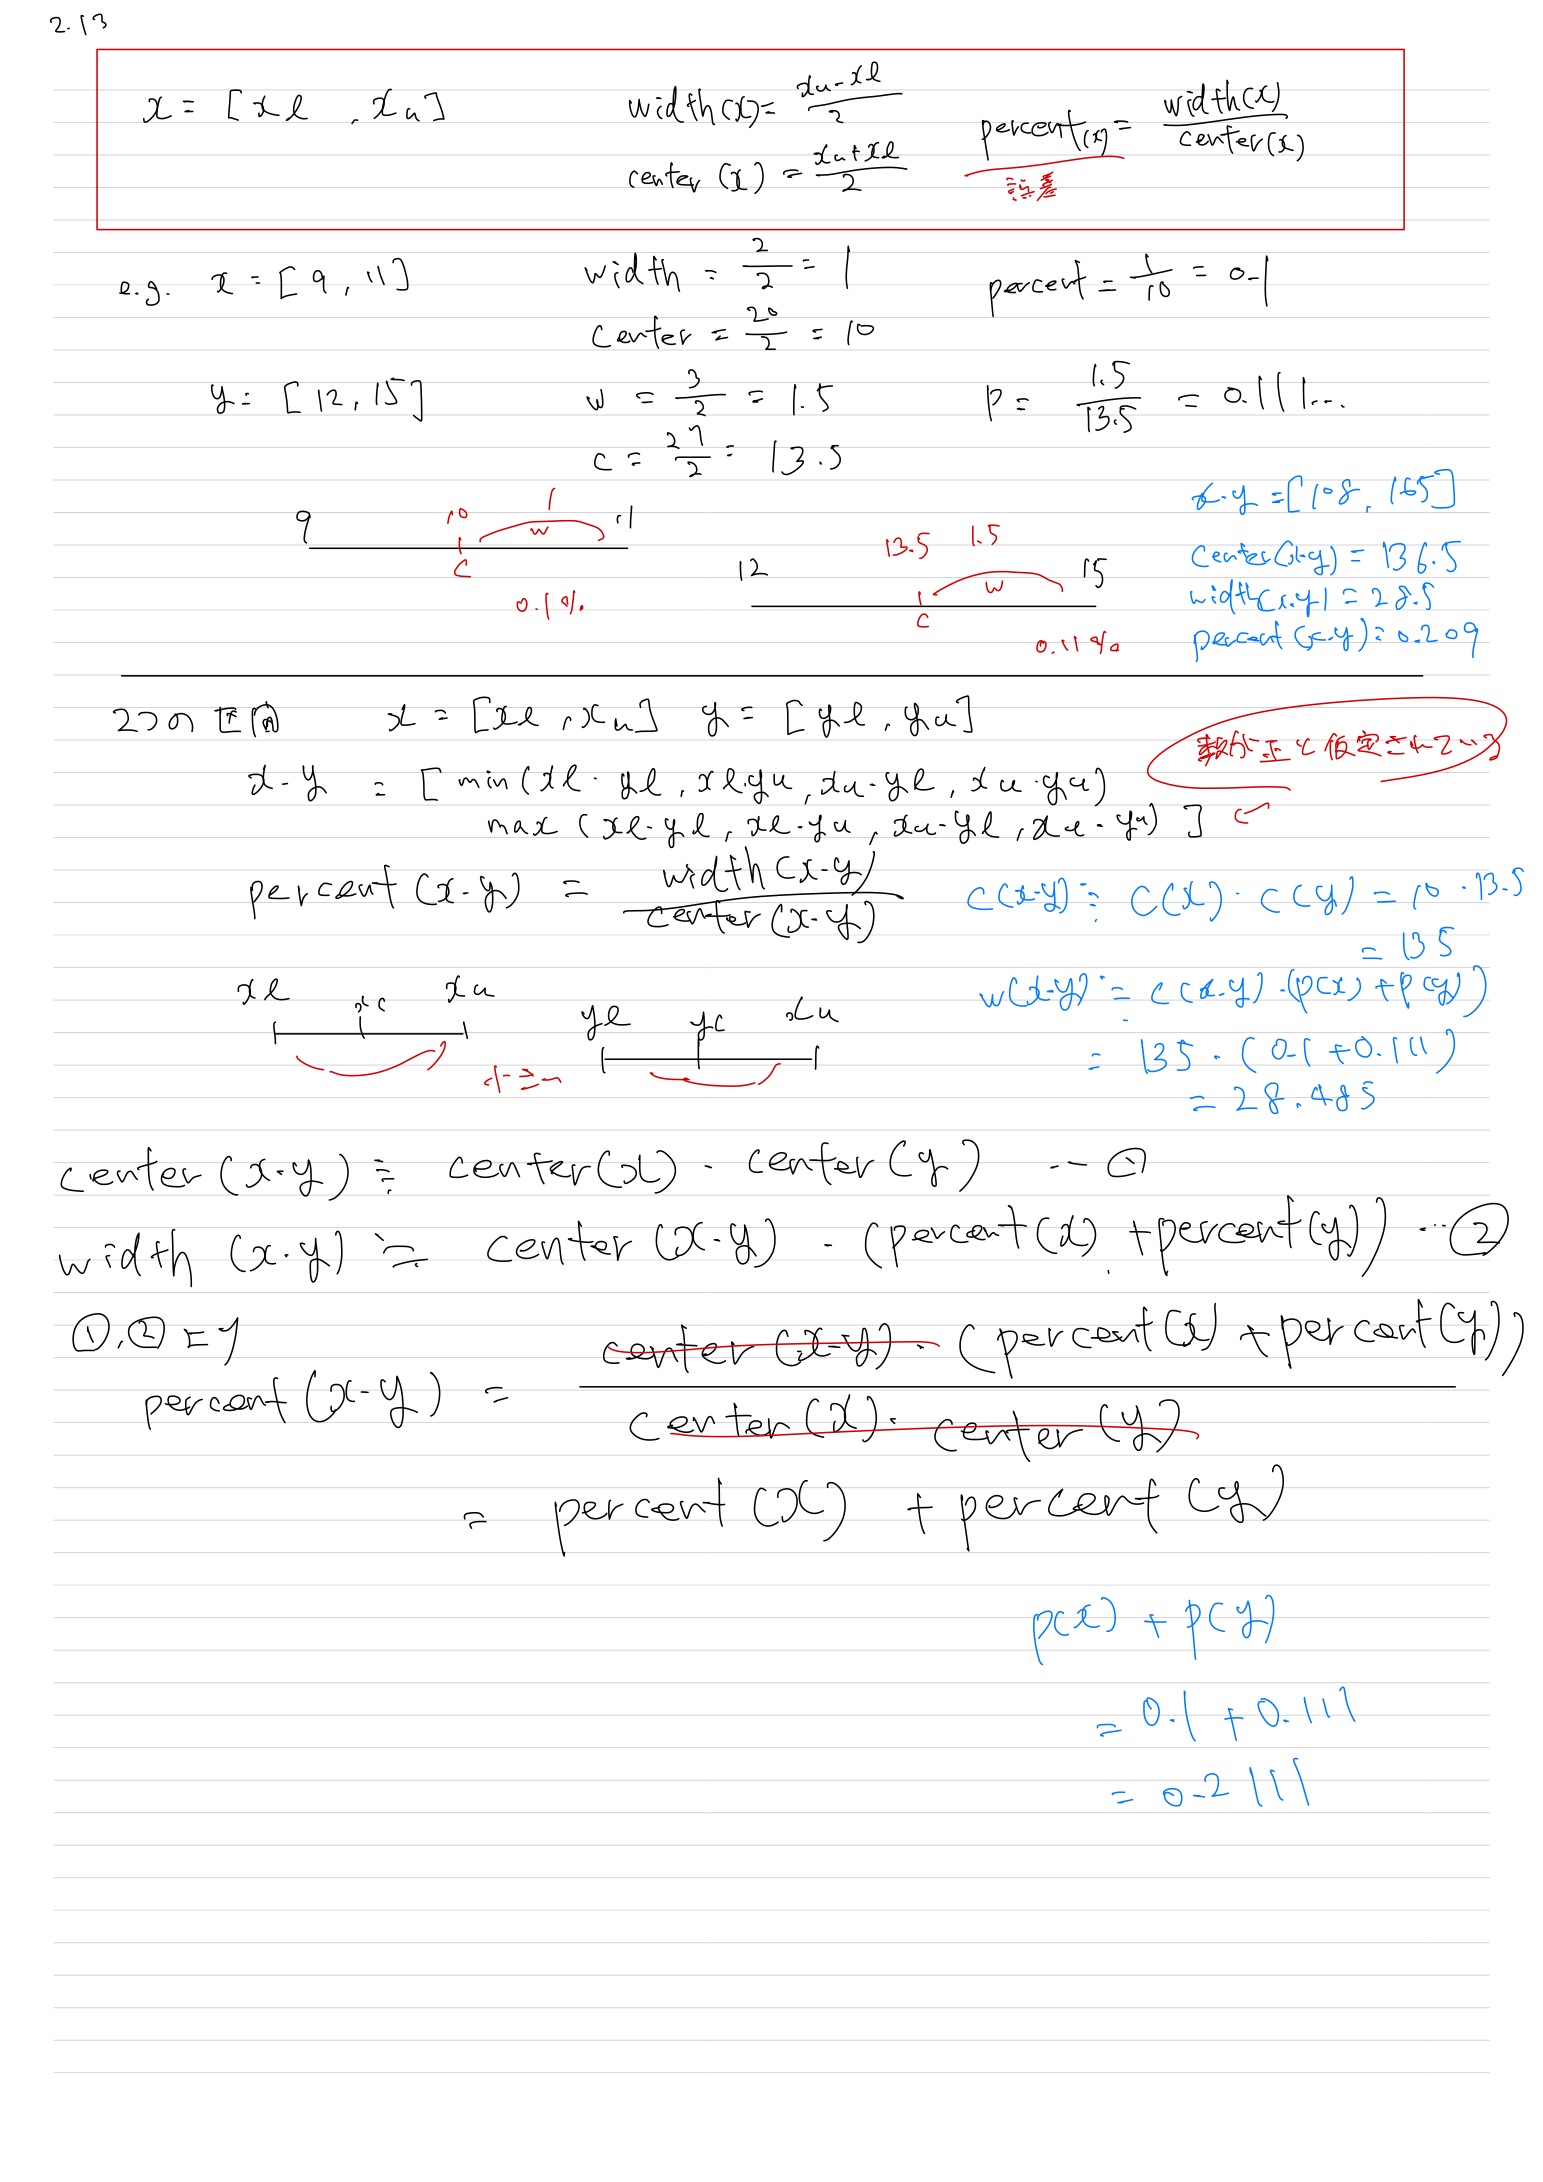 2.13
x = [xl , xu]
width(x) = (xu - xl)/2
center (x) = (xu + xl)/2
percent(x) = width(x)/center(x)
誤差
e.g. x = [9, 11]
width = 2/2 = 1
center = 20/2 = 10
percent = 1/10 = 0.1
y = [12, 15]
w = 3/2 = 1.5
c = 27/2 = 13.5
p = 1.5/13.5 = 0.111...
9 10 1 11
w
c
0.1%
12 13.5 1.5 15
w
c
0.11%
x・y = [108, 165]
center(x・y) = 136.5
width(x・y) = 28.5
percent(x・y) = 0.209
2つの区間 x = [xl , xu] y = [yl , yu]
数が正と仮定されている
x・y = [ min (xl・yl , xl・yu , xu・yl , xu・yu)
max (xl・yl , xl・yu , xu・yl , xu・yu) ]
percent (x・y) = width (x・y)/center (x・y)
c(x・y) ≒ c(x)・c(y) = 10・13.5
= 135
w(x・y) ≒ c(x・y)・(p(x) + p(y))
= 135・(0.1 + 0.111)
= 28.485
xl xc xu
yl yc xu
小さい
center (x・y) ≒ center(x)・center(y) … ①
width (x・y) ≒ center (x・y)・(percent(x) + percent(y)) … ②
①, ②より
percent (x・y) = center (x・y)・(percent(x) + percent(y))/center(x)・center(y)
= percent (x) + percent (y)
p(x) + p(y)
= 0.1 + 0.111
= 0.2111